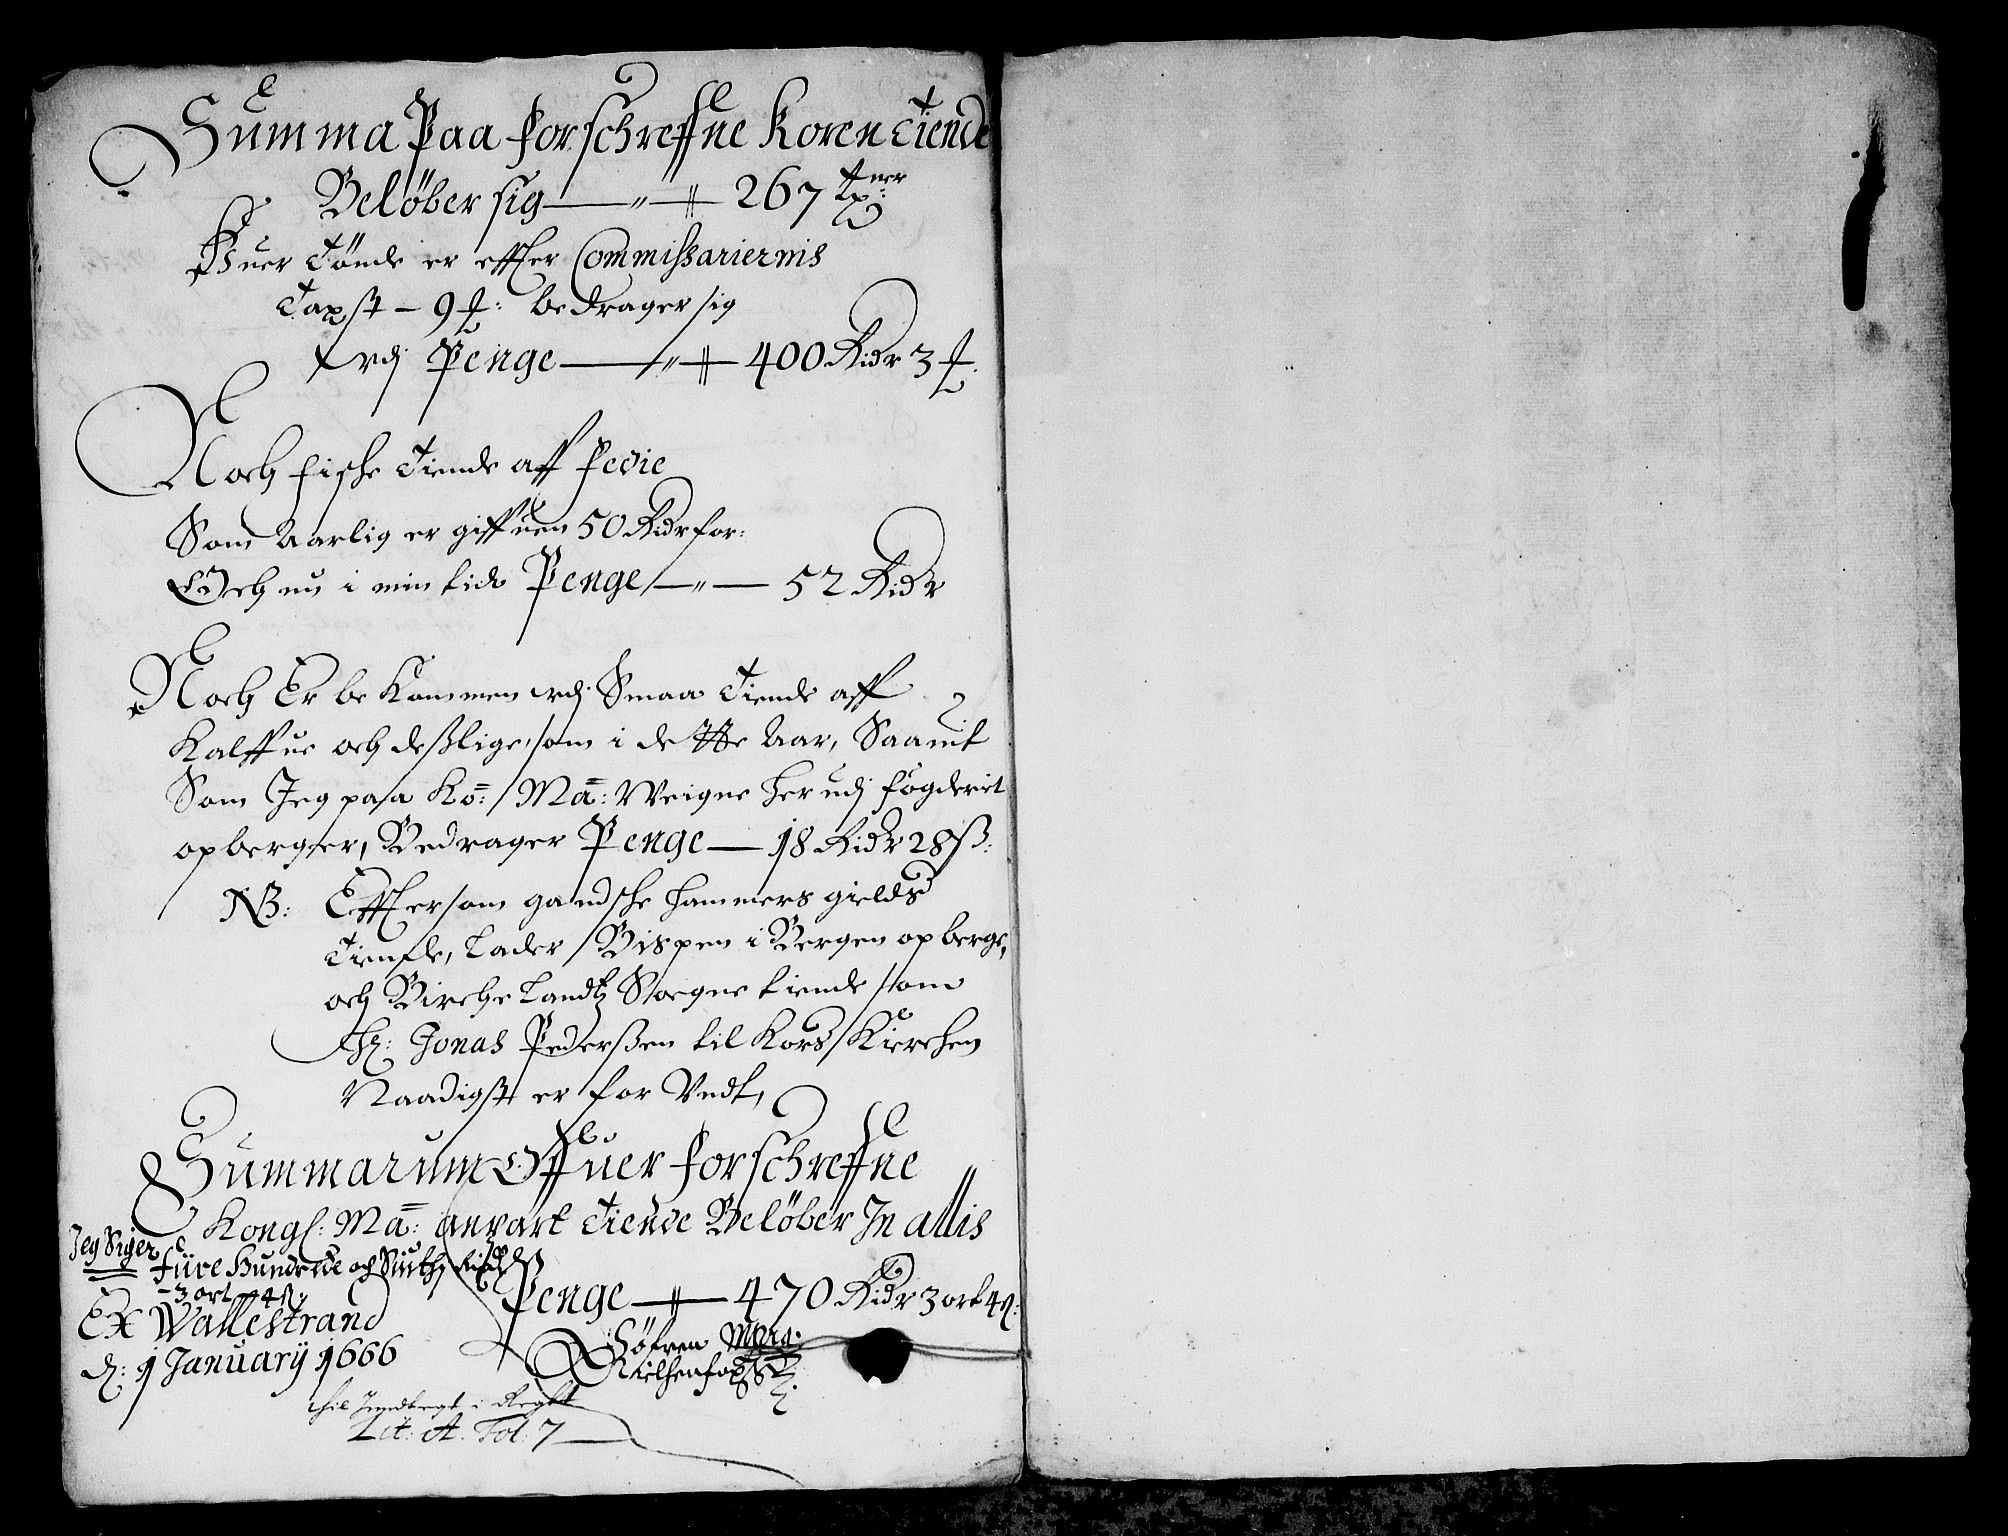 Summa Paa forschreffne Koren Tiende
Beløber sig — 267 tp:ner
Huer Tønde er effter Commissariernis
Taxst – 9 : bedrager sig
udj Penge — 400 Ridr 3
Noch fische Tiende aff Fedie
Som Aarlig er giffuen 50 Ridr for:
Och nu i min tid Penge — 52 Ridr
Noch Er be Kommen udj Smaa Tiende aff
Kalffue och deßlige, som i dette Aar, Saauit
Som Jeg paa Ko: Ma: Weigne her udj fögderiet
opberger, Bedrager Penge — 18 Ridr 28 ß:
NB: Effter som gandsche Hammers gields
Tiende, Lader Bispen i Bergen opberge,
och Birche Landtz Sogne tiende som
Hr: Jonas Pederßen til Kors Kierchen
Naadigst er for Undt,
Summarum Offuer forschreffne
Kongl: Ma: anpart Tiende Beløber In allis
Penge — 470 Ridr 3 ort 4 ß:
Jeg Siger
fiire Hundrede och Siuty Rixdr
– 3 ort 4 ß.
Ex Wallestrand
d: 1 January 1666
Söfren
Nielsen
Lit: A. Fol: 7 —